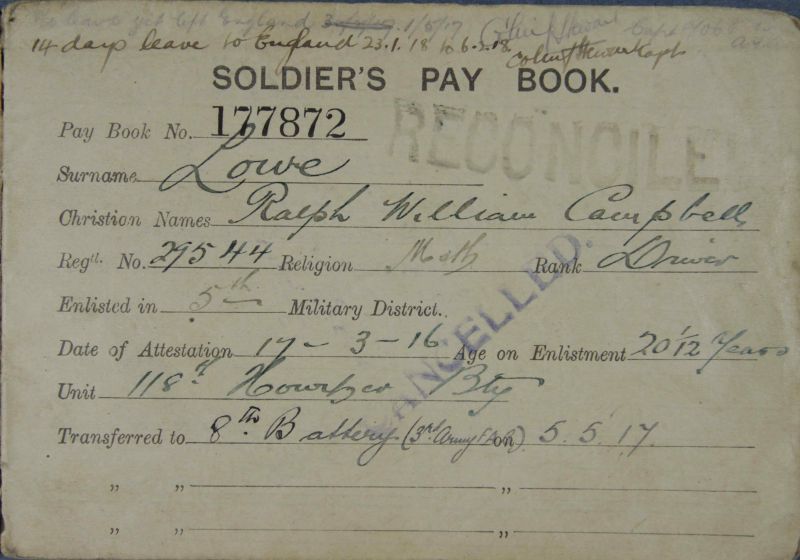 leave yet left England 1/5/17
14 days leave to England 23.1.18 to 6.2.18.
SOLDIER'S PAY BOOK.
RECONCILE
Pay Book No. 177872
Surname Lowe
Christian Names Ralph William Campbell
Regtl. No. 29544 Religion Meth Rank Driver
Enlisted in 5th Military District.
CANCELLED.
Date of Attestation 17-3-16 Age on Enlistment 20 1/12 Years
Unit 118th Howitzer Bty
Transferred to 8th Battery (3rd Army on 5.5.17.
" " "
" " "